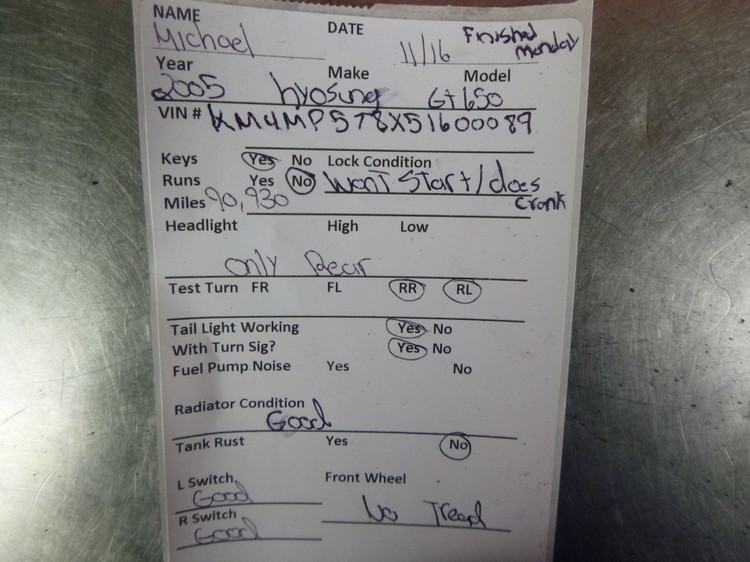 NAME DATE Finished
Michael 11/16 Monday
Year Make Model
2005 hyosung Gt 650
VIN # KM4MP578X51600089
Keys Yes No Lock Condition
Runs Yes No Won't Start/does
Miles 90,930 Crank
Headlight High Low
only Rear
Test Turn FR FL RR RL
Tail Light Working Yes No
With Turn Sig? Yes No
Fuel Pump Noise Yes No
Radiator Condition
Good
Tank Rust Yes No
L Switch Front Wheel
Good
R Switch No Tread
Good